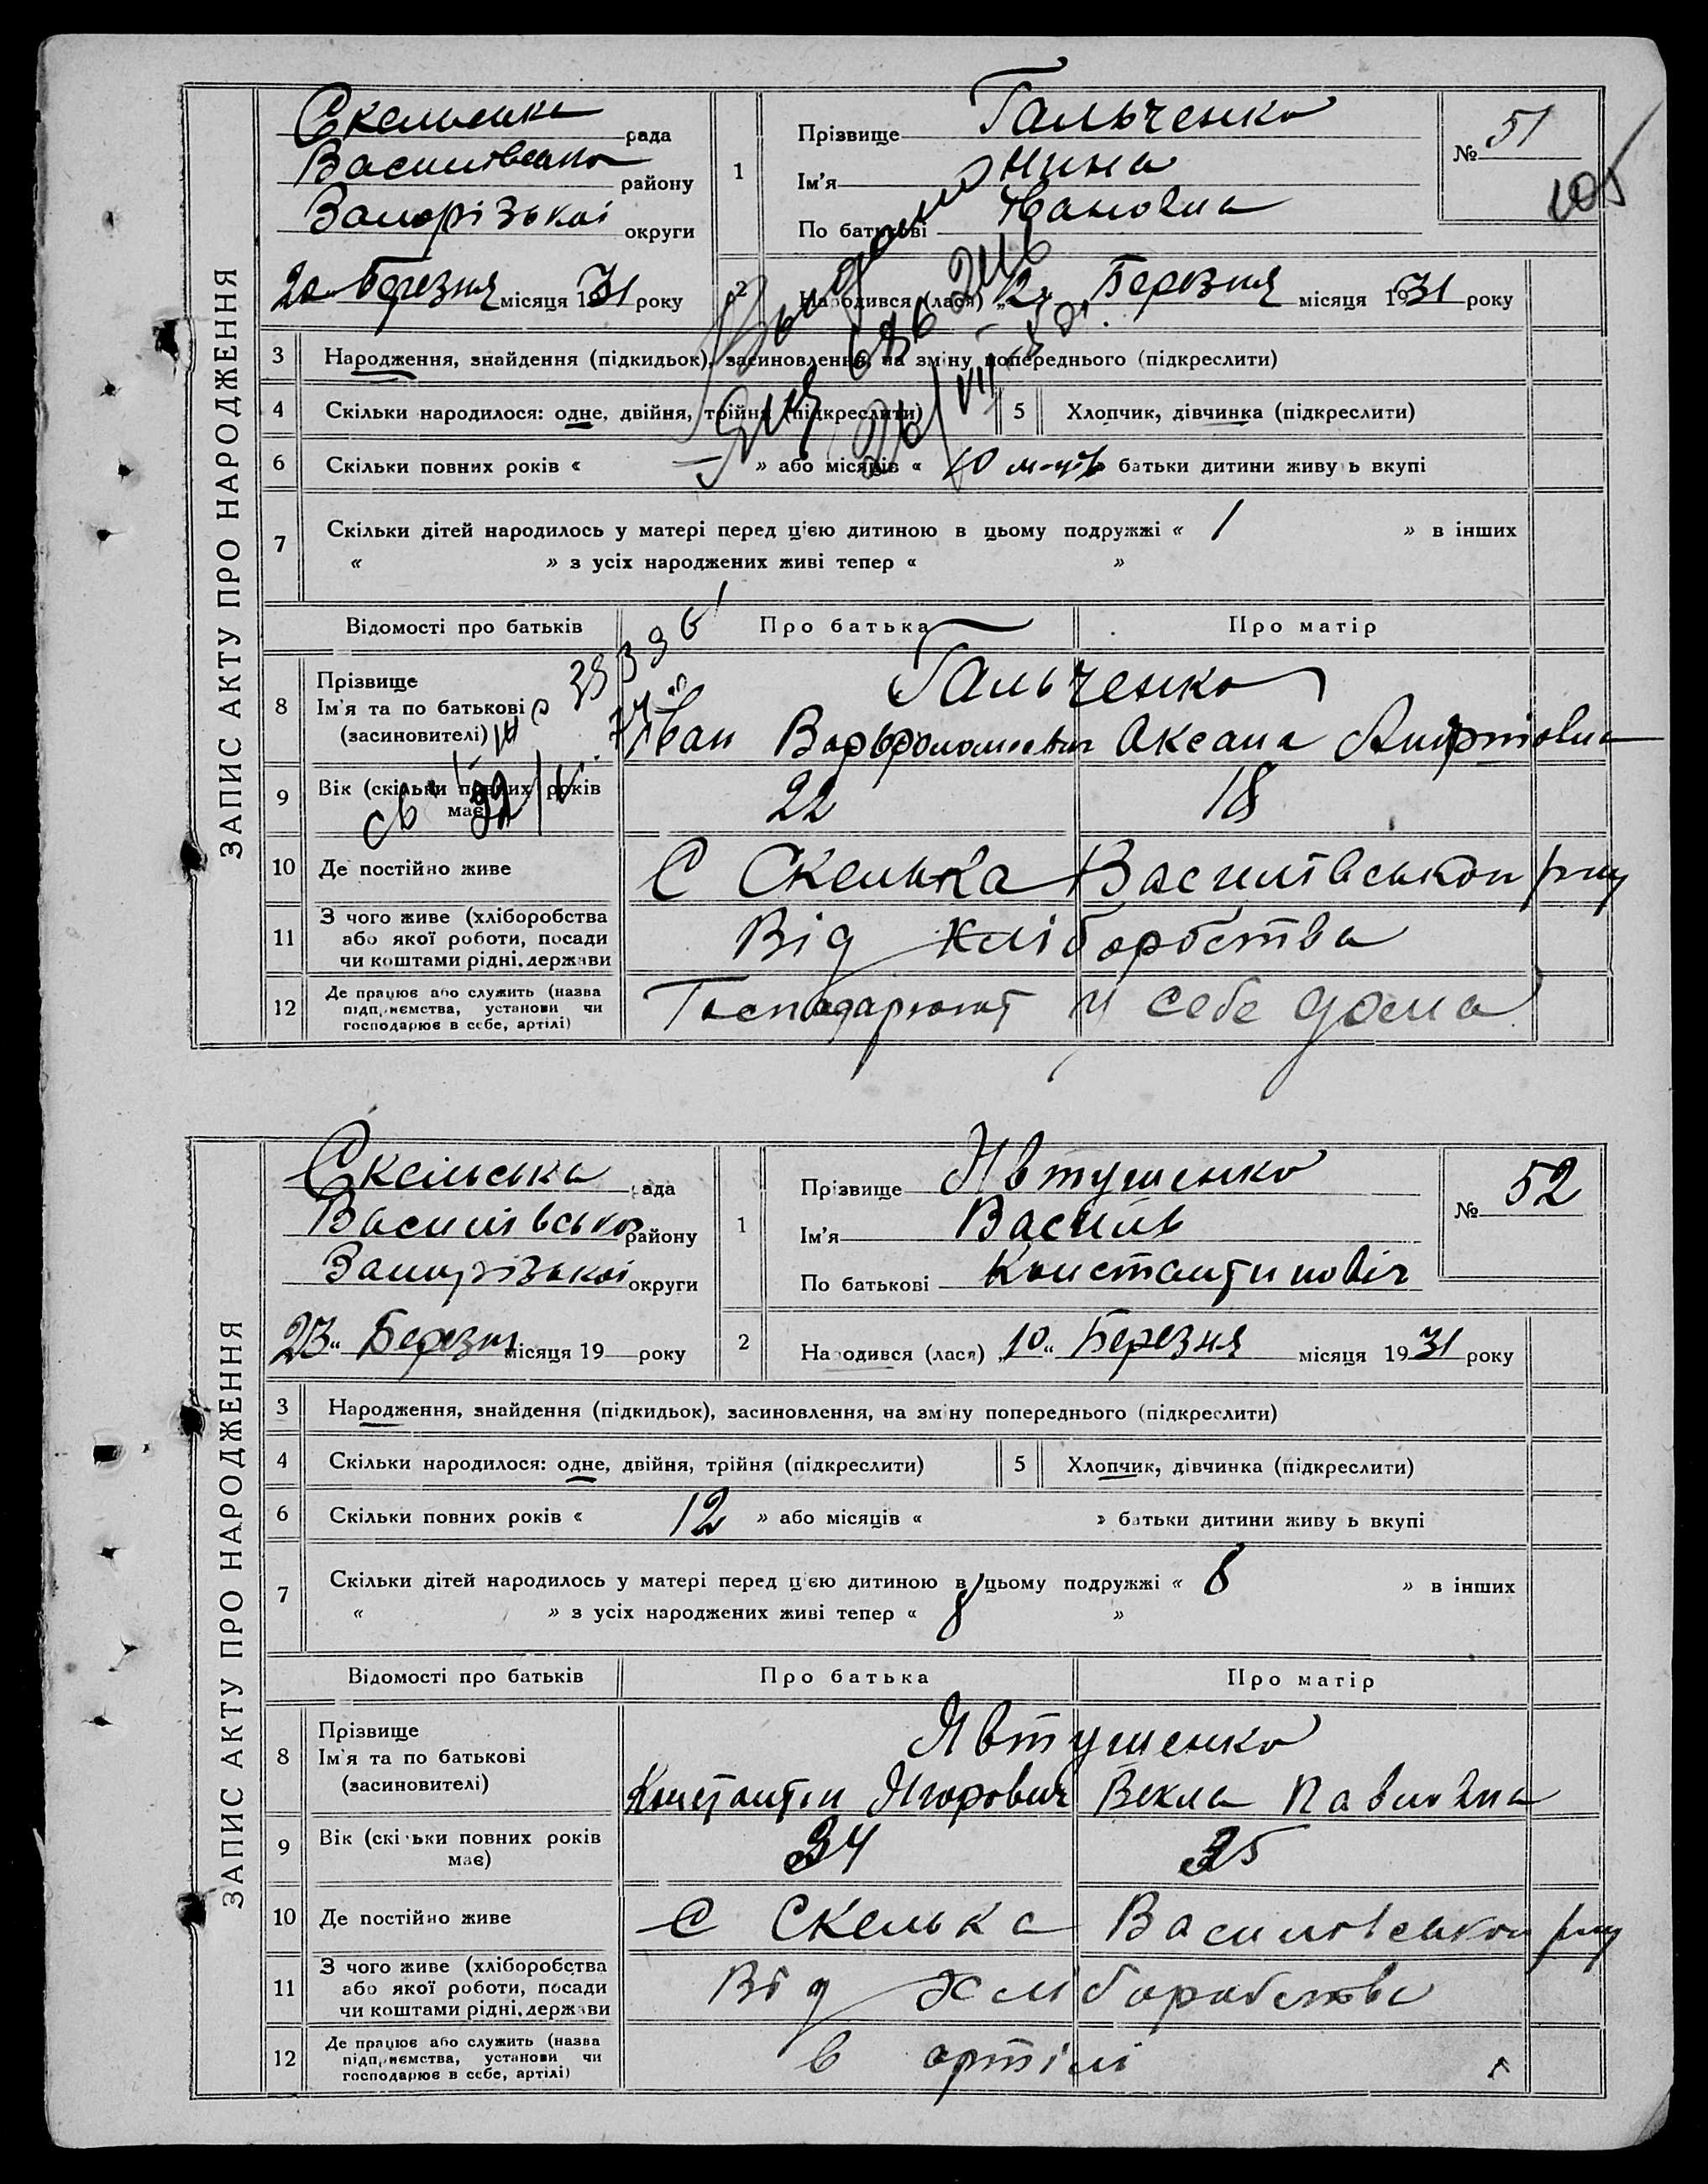 ЗАПИС АКТУ ПРО НАРОДЖЕННЯ
Скельська рада
Василівсько району
Запорізької округи
Березня місяця 1931 року
1
Прізвище Гальченко
Ім'я Нина
По батькові Івановна
№ 51
105
2
Народився (лася) Березня місяця 1931 року
3 Народження, знайдення (підкидьок), засиновлення, на зміну попереднього (підкреслити)
4 Скільки народилося: одне, двійня, трійня (підкреслити)
5 Хлопчик, дівчинка (підкреслити)
6 Скільки повних років « — » або місяців « 10 м-ців » батьки дитини живуть вкупі
7 Скільки дітей народилось у матері перед цією дитиною в цьому подружжі « 1 » в інших
« » з усіх народжених живі тепер « »
Відомості про батьків Про батька Про матір
8 Прізвище
Ім'я та по батькові
(засиновителі)
Гальченко
Іван Оксана
9 Вік (скільки повних років
має)
22 18
10 Де постійно живе
С Скелька Василівського р-ну
11 З чого живе (хліборобства
або якої роботи, посади
чи коштами рідні, держави
Від хліборобства
12 Де працює або служить (назва
підприємства, установи чи
господарює в себе, артілі)
Господарюют у себе дома
ЗАПИС АКТУ ПРО НАРОДЖЕННЯ
Скельська рада
Василівсько району
Запорізької округи
23 „ Березня місяця 19 року
1
Прізвище Явтушенко
Ім'я Василь
По батькові Константиновіч
№ 52
2
Народився (лася) „10„ Березня місяця 1931 року
3 Народження, знайдення (підкидьок), засиновлення, на зміну попереднього (підкреслити)
4 Скільки народилося: одне, двійня, трійня (підкреслити)
5 Хлопчик, дівчинка (підкреслити)
6 Скільки повних років « 12 » або місяців « » батьки дитини живуть вкупі
7 Скільки дітей народилось у матері перед цією дитиною в цьому подружжі « » в інших
« » з усіх народжених живі тепер « »
Відомості про батьків Про батька Про матір
8 Прізвище
Ім'я та по батькові
(засиновителі)
Явтушенко
Константин Ягорович Векла Павловна
9 Вік (скільки повних років
має)
34 35
10 Де постійно живе
С Скелька Василівського р-ну
11 З чого живе (хліборобства
або якої роботи, посади
чи коштами рідні, держави
Від хліборобства
12 Де працює або служить (назва
підприємства, установи чи
господарює в себе, артілі)
в артілі